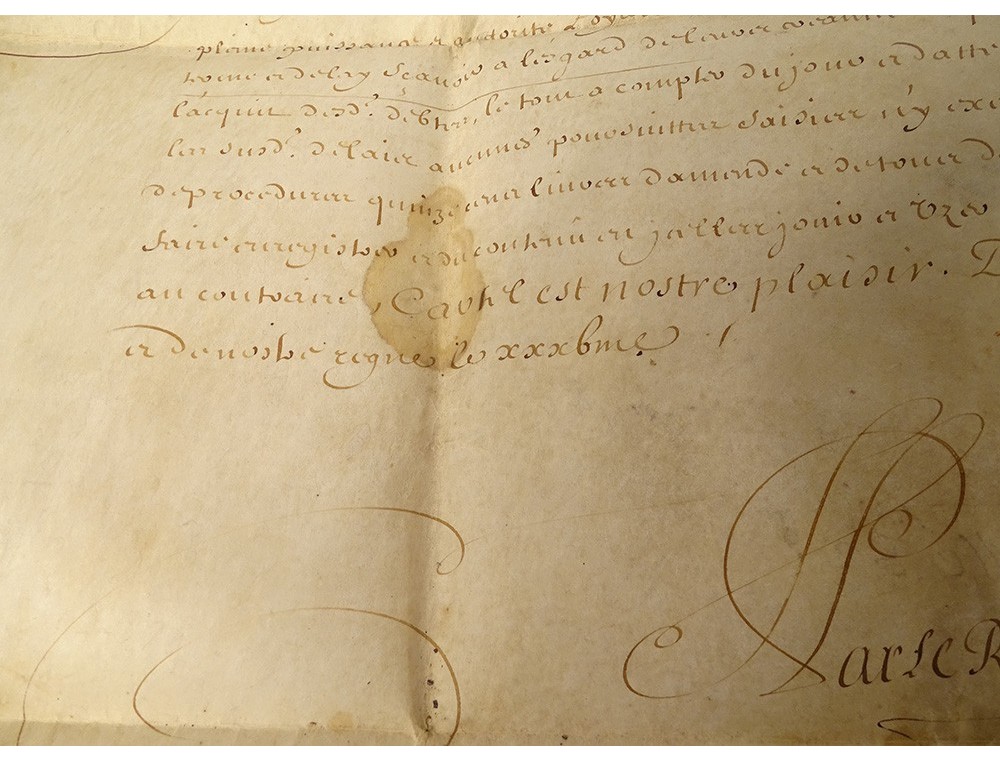 plaine puissance et authorité Roya
a lesgard de
l'acquit desd.s debtes, le tout a compter du jour et datte
les susd.s delaicts aucunes poursuittes saisies n'y exe
de procedures quinze cens livres damende et de tous de
faire enregistrer et du contenû en jcelles jouir et Vzer
au contraire, Car tel est nostre plaisir. D
et de nostre regne le xxxbme
Par le R